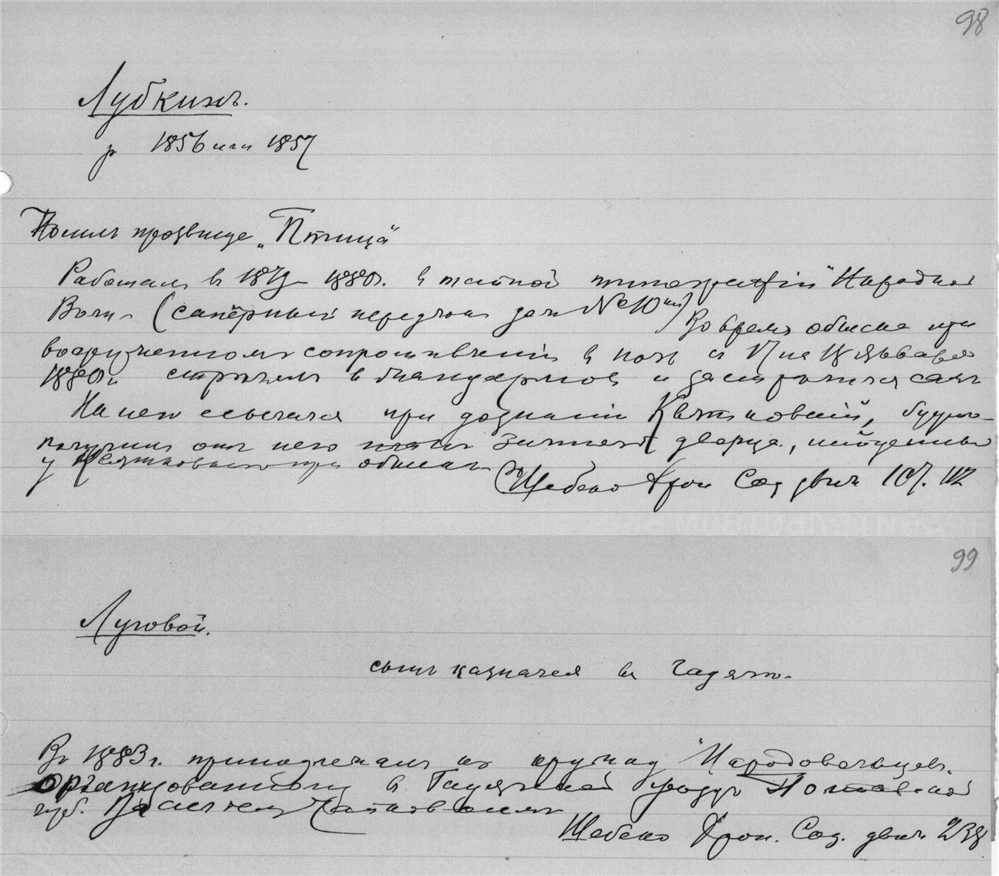 98
Лубкинъ.
р 1856 или 1857
Носилъ прозвище „Птица“
Работалъ в 1879–1880г. в тайной типографіи "Народной
Воли (сапёрный переулок домъ № 10ый) Во время обыска при
вооруженномъ сопротивленіи в ночь с 17 на 18 Января
1880г. стрѣлялъ в жандармов и застрѣлился самъ
На него ссылался при дознаніи Квятковскій, будто
получилъ отъ него планъ Зимнего дворца, найденный
у Квятковского при обыске
Шебеко Хрон Соц движ 107. 112
99
Луговой.
сынъ казначея въ Гадяче.
Въ 1883г. принадлежалъ къ кружку "Народовольцев.
организованному в Гадячском уезде Полтавской
губ. Василіем
Шебеко Хрон. Соц. движ 238